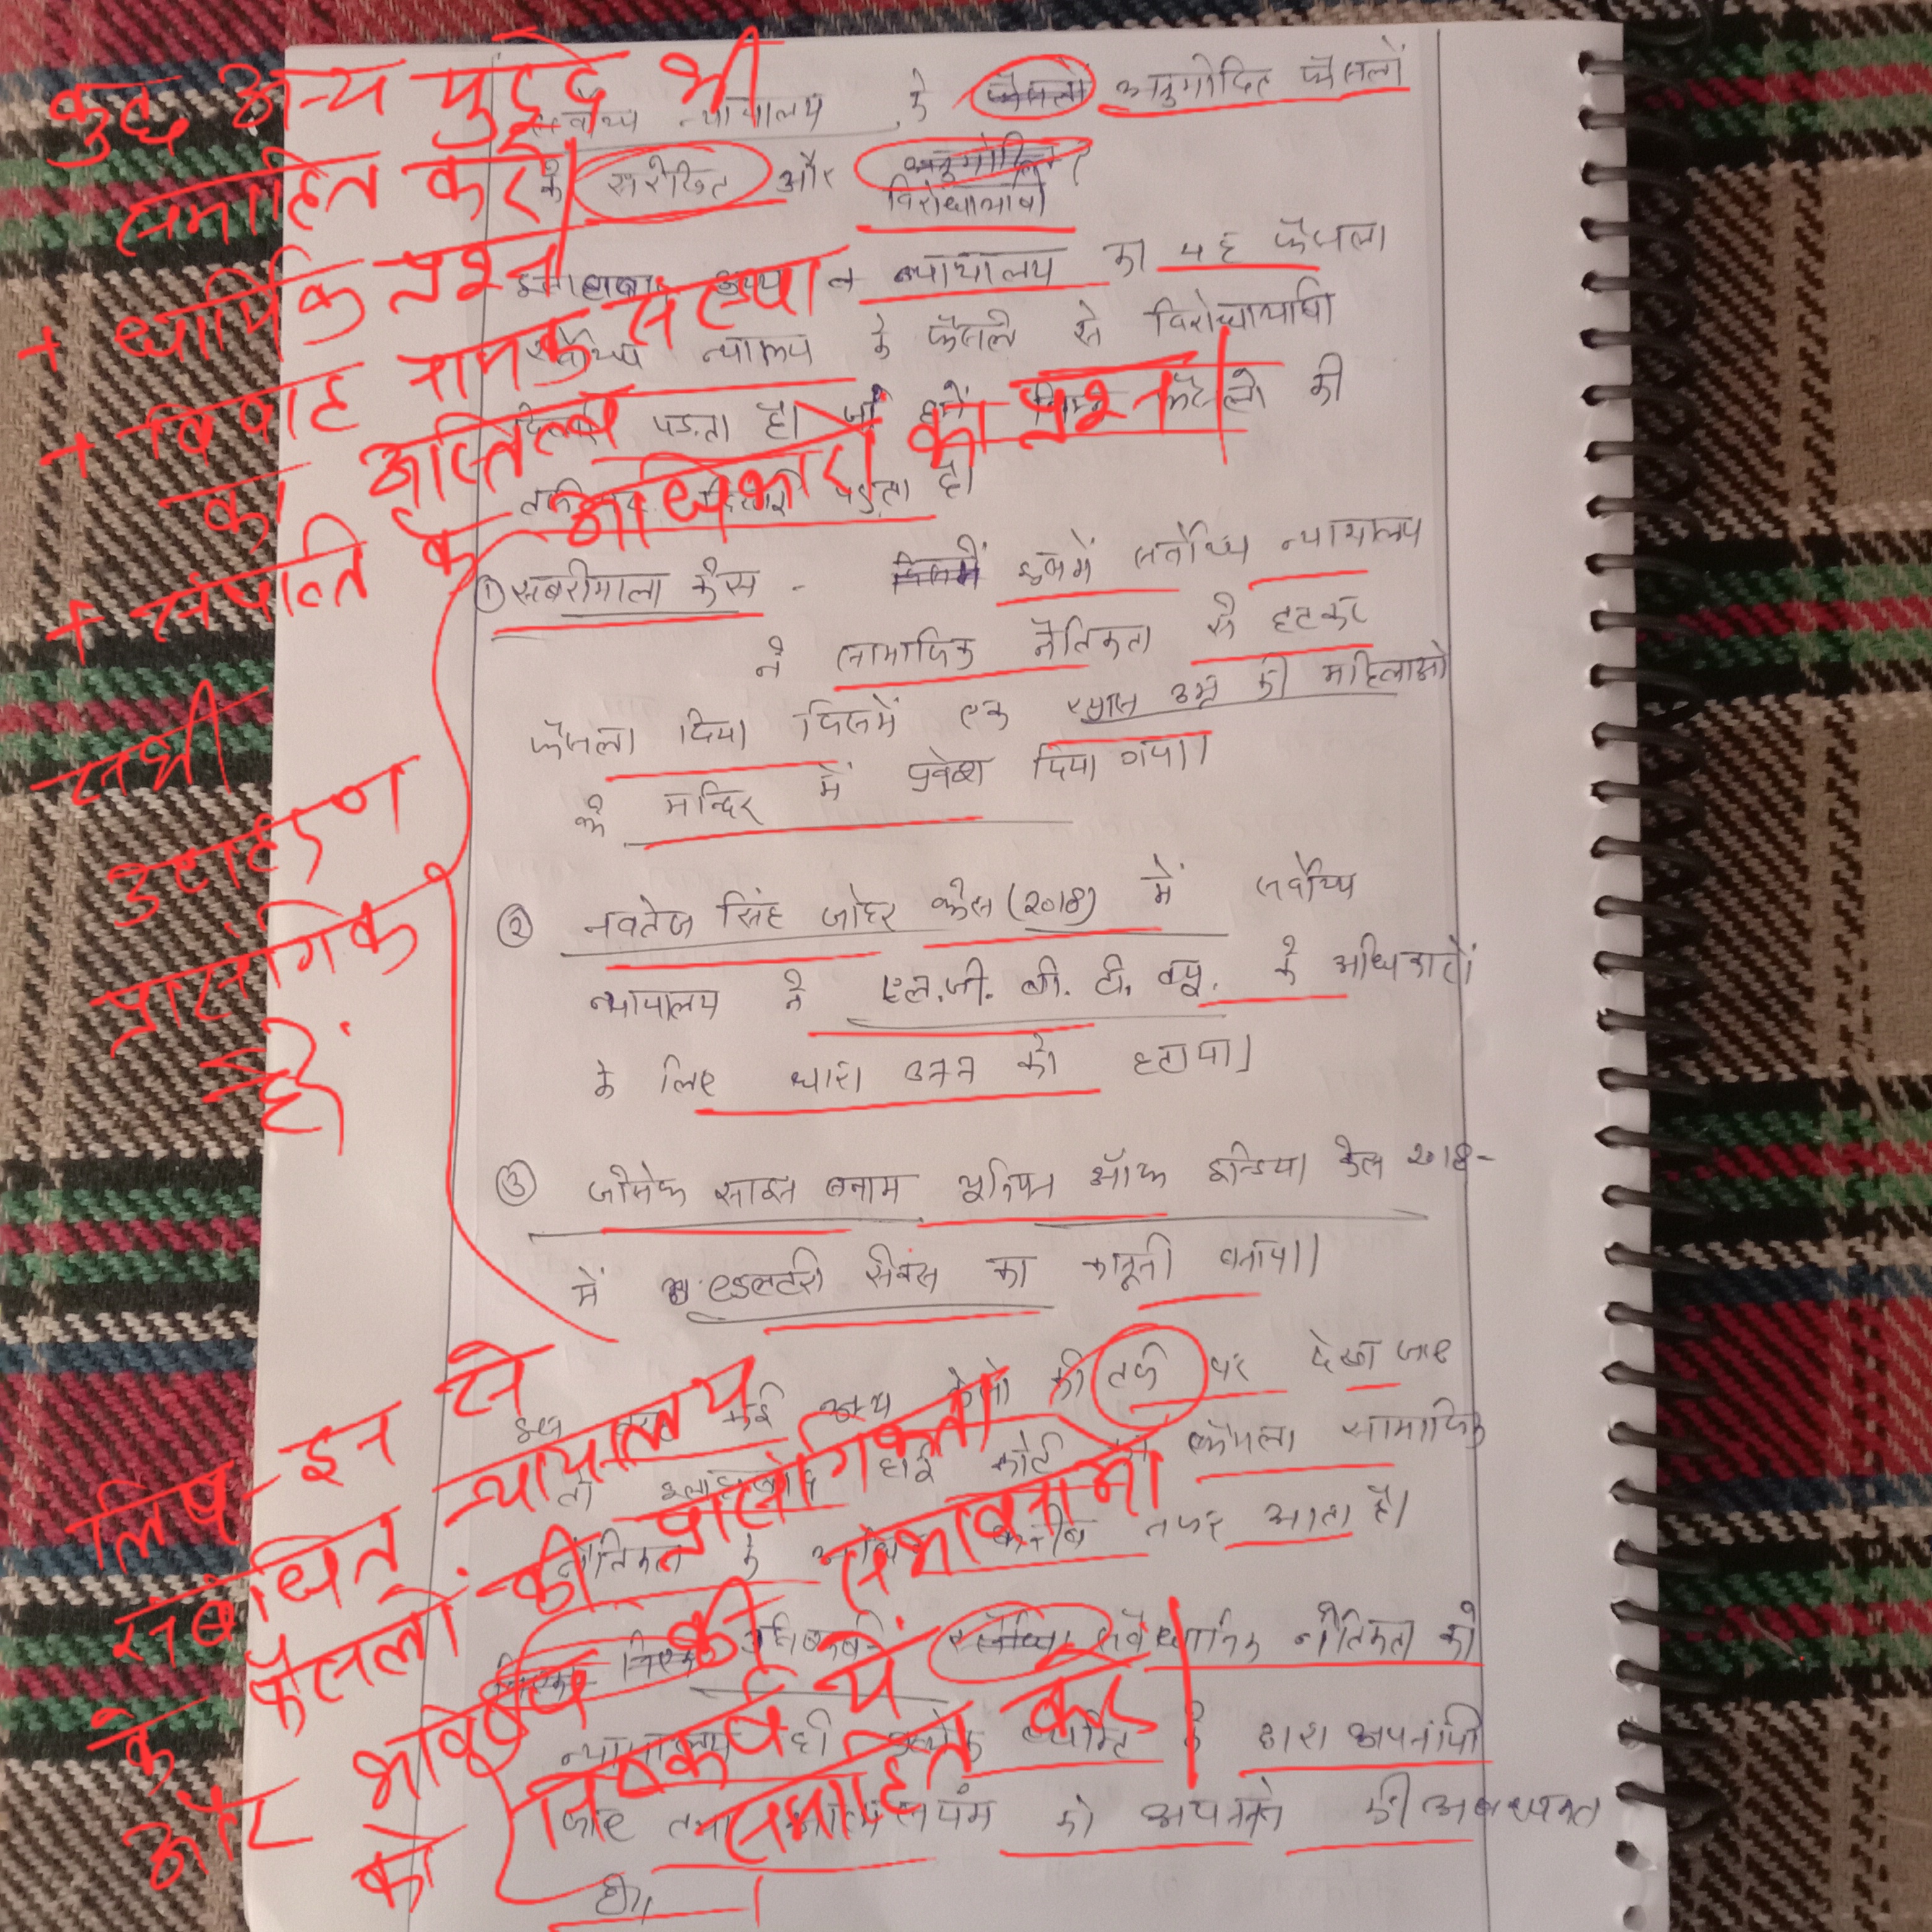 कुछ अन्य मुद्दे भी
समाहित करें।
+ धार्मिक प्रश्न
+ विवाह नामक संस्था
का अस्तित्व
+ संपत्ति के अधिकारों का प्रश्न।
सभी
उदाहरण
प्रासंगिक
हैं।
न्यायालय के फैसलों अनुमोदित फैसलों
के सरंक्षित और अनुमोदित
विरोधाभाषी
न्यायालय का यह फैसला
न्यालय के फैसले से विरोधाभाषी
पड़ता है। जो हमें फैसलो की
पड़ता है।
① सबरीमाला केस - जिसमें इसमें सर्वोच्च न्यायालय
ने सामाजिक नैतिकता से हटकर
फैसला दिया जिसमें एक खास उम्र की महिलाओ
के मन्दिर में प्रवेश दिया गया।
② नवतेज सिंह जोहर केस (2018) में सर्वोच्च
न्यायालय ने एल.जी. बी. टी. क्यू. के अधिकारों
के लिए धारा 377 को हटाया।
③ जोसेफ साइन बनाम यूनियन ऑफ इन्डिया केस 2018-
में एडल्टरी सेक्स का कानूनी बनाया।
कई अन्य केसो की तर्ज पर देखा जाए
तो इलाहाबाद हाई कोर्ट फैसला सामाजिक
नैतिकता के करीब नजर आता है।
संवैधानिक नैतिकता को
न्यायालय ही के द्वारा अपनायी
जाए को अपनाने की आवश्यकता
है।
लिव इन से
संबंधित न्यायालय
के फैसलों की प्रासंगिकता
और भविष्य की संभावनाओं
को निष्कर्ष में
समाहित करें।